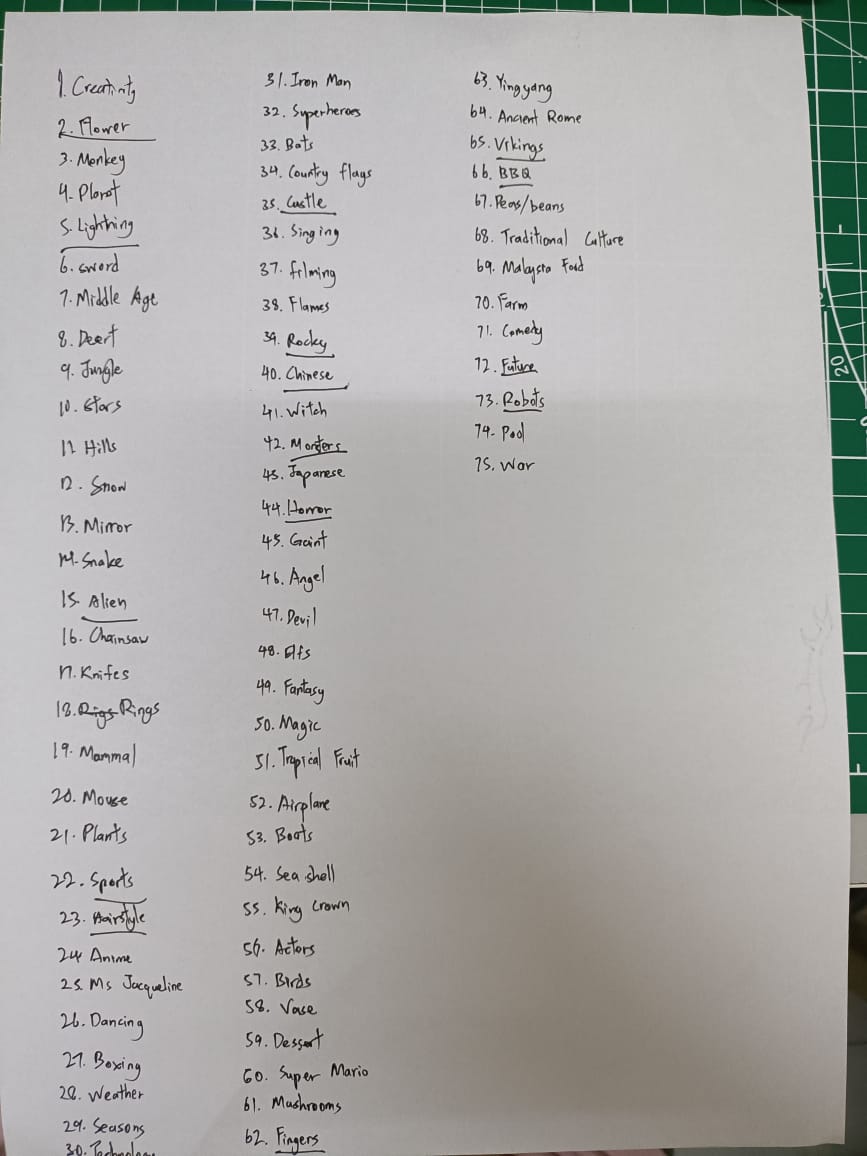 1. Creativity
2. Flower
3. Monkey
4. Planet
5. Lightning
6. sword
7. Middle Age
8. Desert
9. Jungle
10. Stars
11. Hills
12. Snow
13. Mirror
14. Snake
15. Alien
16. Chainsaw
17. Knifes
18. Rings
19. Mammal
20. Mouse
21. Plants
22. Sports
23. Hairstyle
24. Anime
25. Ms Jacqueline
26. Dancing
27. Boxing
28. Weather
29. Seasons
30. Technology
31. Iron Man
32. Superheroes
33. Bats
34. Country flags
35. Castle
36. Singing
37. filming
38. Flames
39. Rocky
40. Chinese
41. Witch
42. Monsters
43. Japanese
44. Horror
45. Gaint
46. Angel
47. Devil
48. Elfs
49. Fantasy
50. Magic
51. Tropical Fruit
52. Airplane
53. Boats
54. Sea shell
55. King Crown
56. Actors
57. Birds
58. Vase
59. Dessert
60. Super Mario
61. Mushrooms
62. Fingers
63. Ying yang
64. Ancient Rome
65. Vikings
66. BBQ
67. Peas/beans
68. Traditional Culture
69. Malaysia Food
70. Farm
71. Comedy
72. Future
73. Robots
74. Pool
75. War
20